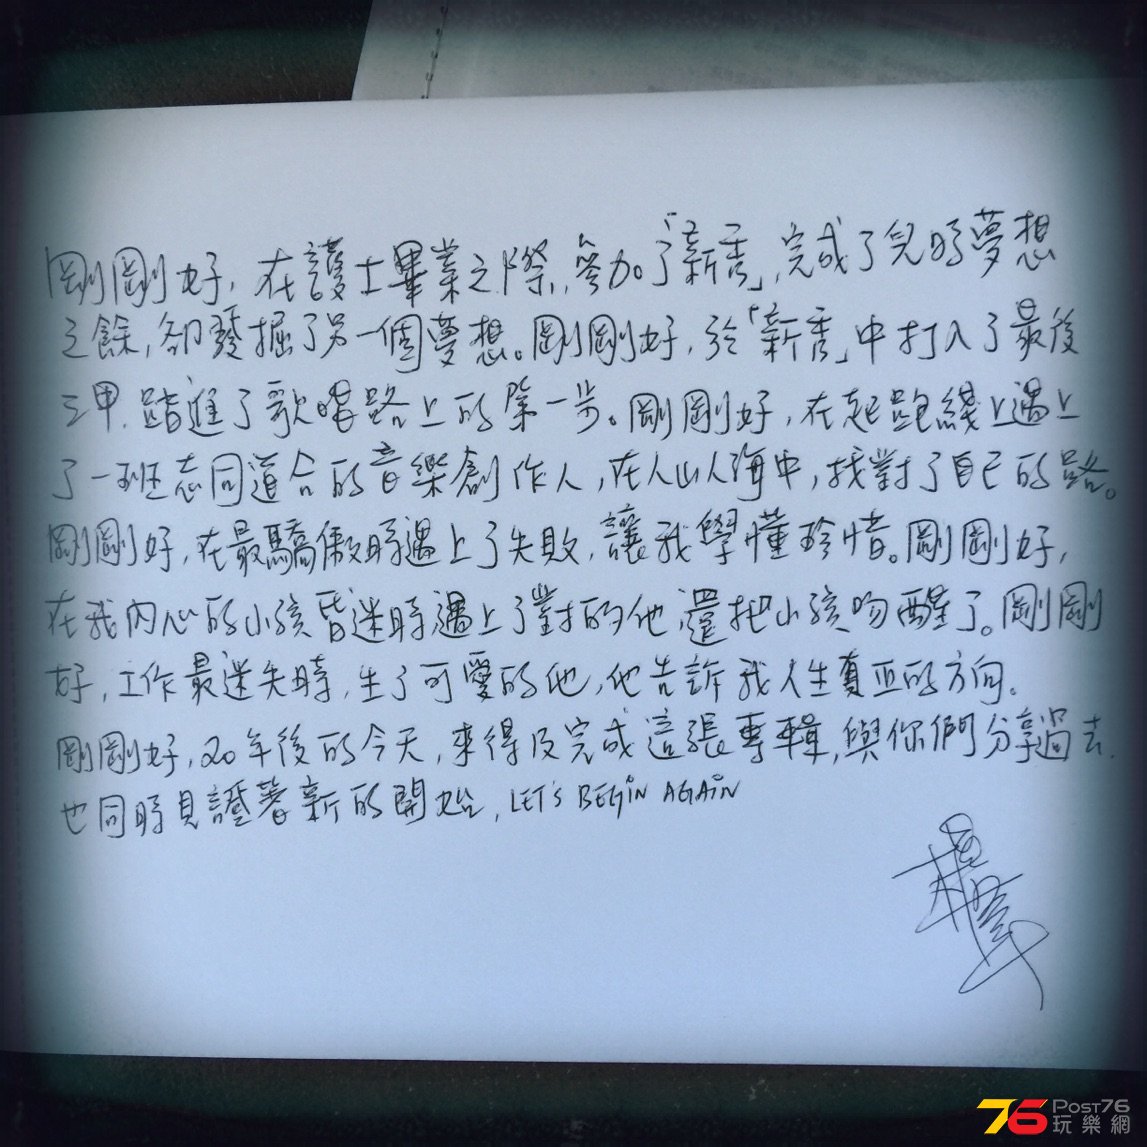 剛剛好，在護士畢業之際，參加了「新秀」，完成了兒時夢想
之餘，卻發掘了另一個夢想。剛剛好，於「新秀」中打入了最後
三甲，踏進了歌唱路上的第一步。剛剛好，在起跑綫上遇上
了一班志同道合的音樂創作人，在人山人海中，找對了自己的路。
剛剛好，在最驕傲時遇上了失敗，讓我學懂珍惜。剛剛好，
在我內心的小孩昏迷時遇上了對的他，還把小孩吻醒了。剛剛
好，工作最迷失時，生了可愛的他，他告訴我人生真正的方向。
剛剛好，20年後的今天，來得及完成這張專輯，與你們分享過去，
也同時見證著新的開始，LET'S BEGIN AGAIN
76 POST76
玩樂網